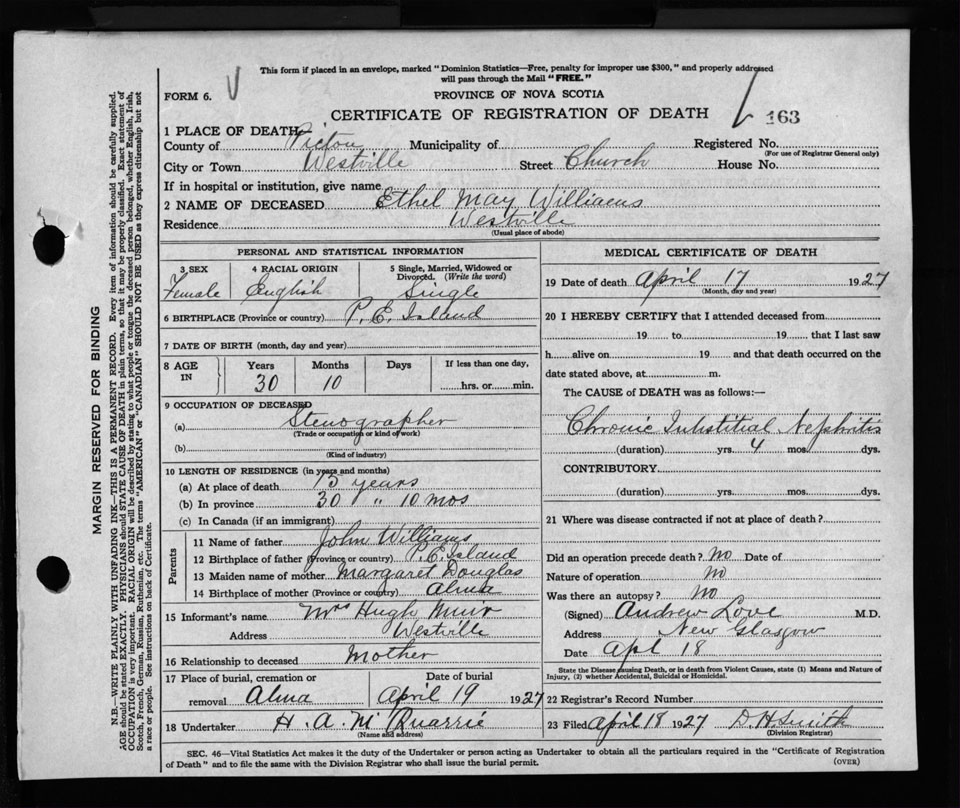 This form if placed in an envelope, marked "Dominion Statistics—Free, penalty for improper use $300," and properly addressed
will pass through the Mail "FREE."
FORM 6.
PROVINCE OF NOVA SCOTIA
CERTIFICATE OF REGISTRATION OF DEATH
163
1 PLACE OF DEATH
County of Pictou Municipality of Registered No.
(For use of Registrar General only)
City or Town Westville Street Church House No.
If in hospital or institution, give name
2 NAME OF DECEASED Ethel May Williams
Residence Westville
(Usual place of abode)
MARGIN RESERVED FOR BINDING
N.B.—WRITE PLAINLY WITH UNFADING INK—THIS IS A PERMANENT RECORD. Every item of information should be carefully supplied.
AGE should be stated EXACTLY. PHYSICIANS should STATE CAUSE OF DEATH in plain terms, so that it may be properly classified. Exact statement of
OCCUPATION is very important. RACIAL ORIGIN will be described by stating to what people or tongue the deceased person belonged, whether English, Irish,
Scotch, French, German, Russian, Ruthenian, etc. The terms "AMERICAN" or "CANADIAN" SHOULD NOT BE USED as they express citizenship but not
a race or people. See instructions on back of Certificate.
PERSONAL AND STATISTICAL INFORMATION
3 SEX
Female
4 RACIAL ORIGIN
English
5 Single, Married, Widowed or
Divorced. (Write the word)
Single
6 BIRTHPLACE (Province or country) P. E. Island
7 DATE OF BIRTH (month, day and year)
8 AGE
IN
Years Months Days If less than one day,
30 10 hrs. or min.
9 OCCUPATION OF DECEASED
(a) Stenographer
(Trade or occupation or kind of work)
(b)
(Kind of industry)
10 LENGTH OF RESIDENCE (in years and months)
(a) At place of death years
(b) In province 30 " 10 mos
(c) In Canada (if an immigrant)
Parents
11 Name of father John Williams
12 Birthplace of father (Province or country) P. E. Island
13 Maiden name of mother Margaret Douglas
14 Birthplace of mother (Province or country) Alma
15 Informant's name Mrs Hugh Muir
Address Westville
16 Relationship to deceased Mother
17 Place of burial, cremation or
removal Alma
Date of burial
April 19 1927
18 Undertaker H. A. McQuarrie
(Name and address)
MEDICAL CERTIFICATE OF DEATH
19 Date of death April 17 1927
(Month, day and year)
20 I HEREBY CERTIFY that I attended deceased from
19 to 19 that I last saw
h alive on 19 and that death occurred on the
date stated above, at m.
The CAUSE of DEATH was as follows:
Chronic Intustitial Nephritis
(duration) yrs. 4 mos. dys.
CONTRIBUTORY
(duration) yrs. mos. dys.
21 Where was disease contracted if not at place of death?
Did an operation precede death? No Date of
Nature of operation No
Was there an autopsy? No
(Signed) Andrew Love M.D.
Address New Glasgow
Date Apl 18
State the Disease causing Death, or in death from Violent Causes, state (1) Means and Nature of
Injury, (2) whether Accidental, Suicidal or Homicidal.
22 Registrar's Record Number
23 Filed April 18 1927 D. H. Smith
(Division Registrar)
SEC. 46—Vital Statistics Act makes it the duty of the Undertaker or person acting as Undertaker to obtain all the particulars required in the "Certificate of Registration
of Death" and to file the same with the Division Registrar who shall issue the burial permit.
(OVER)